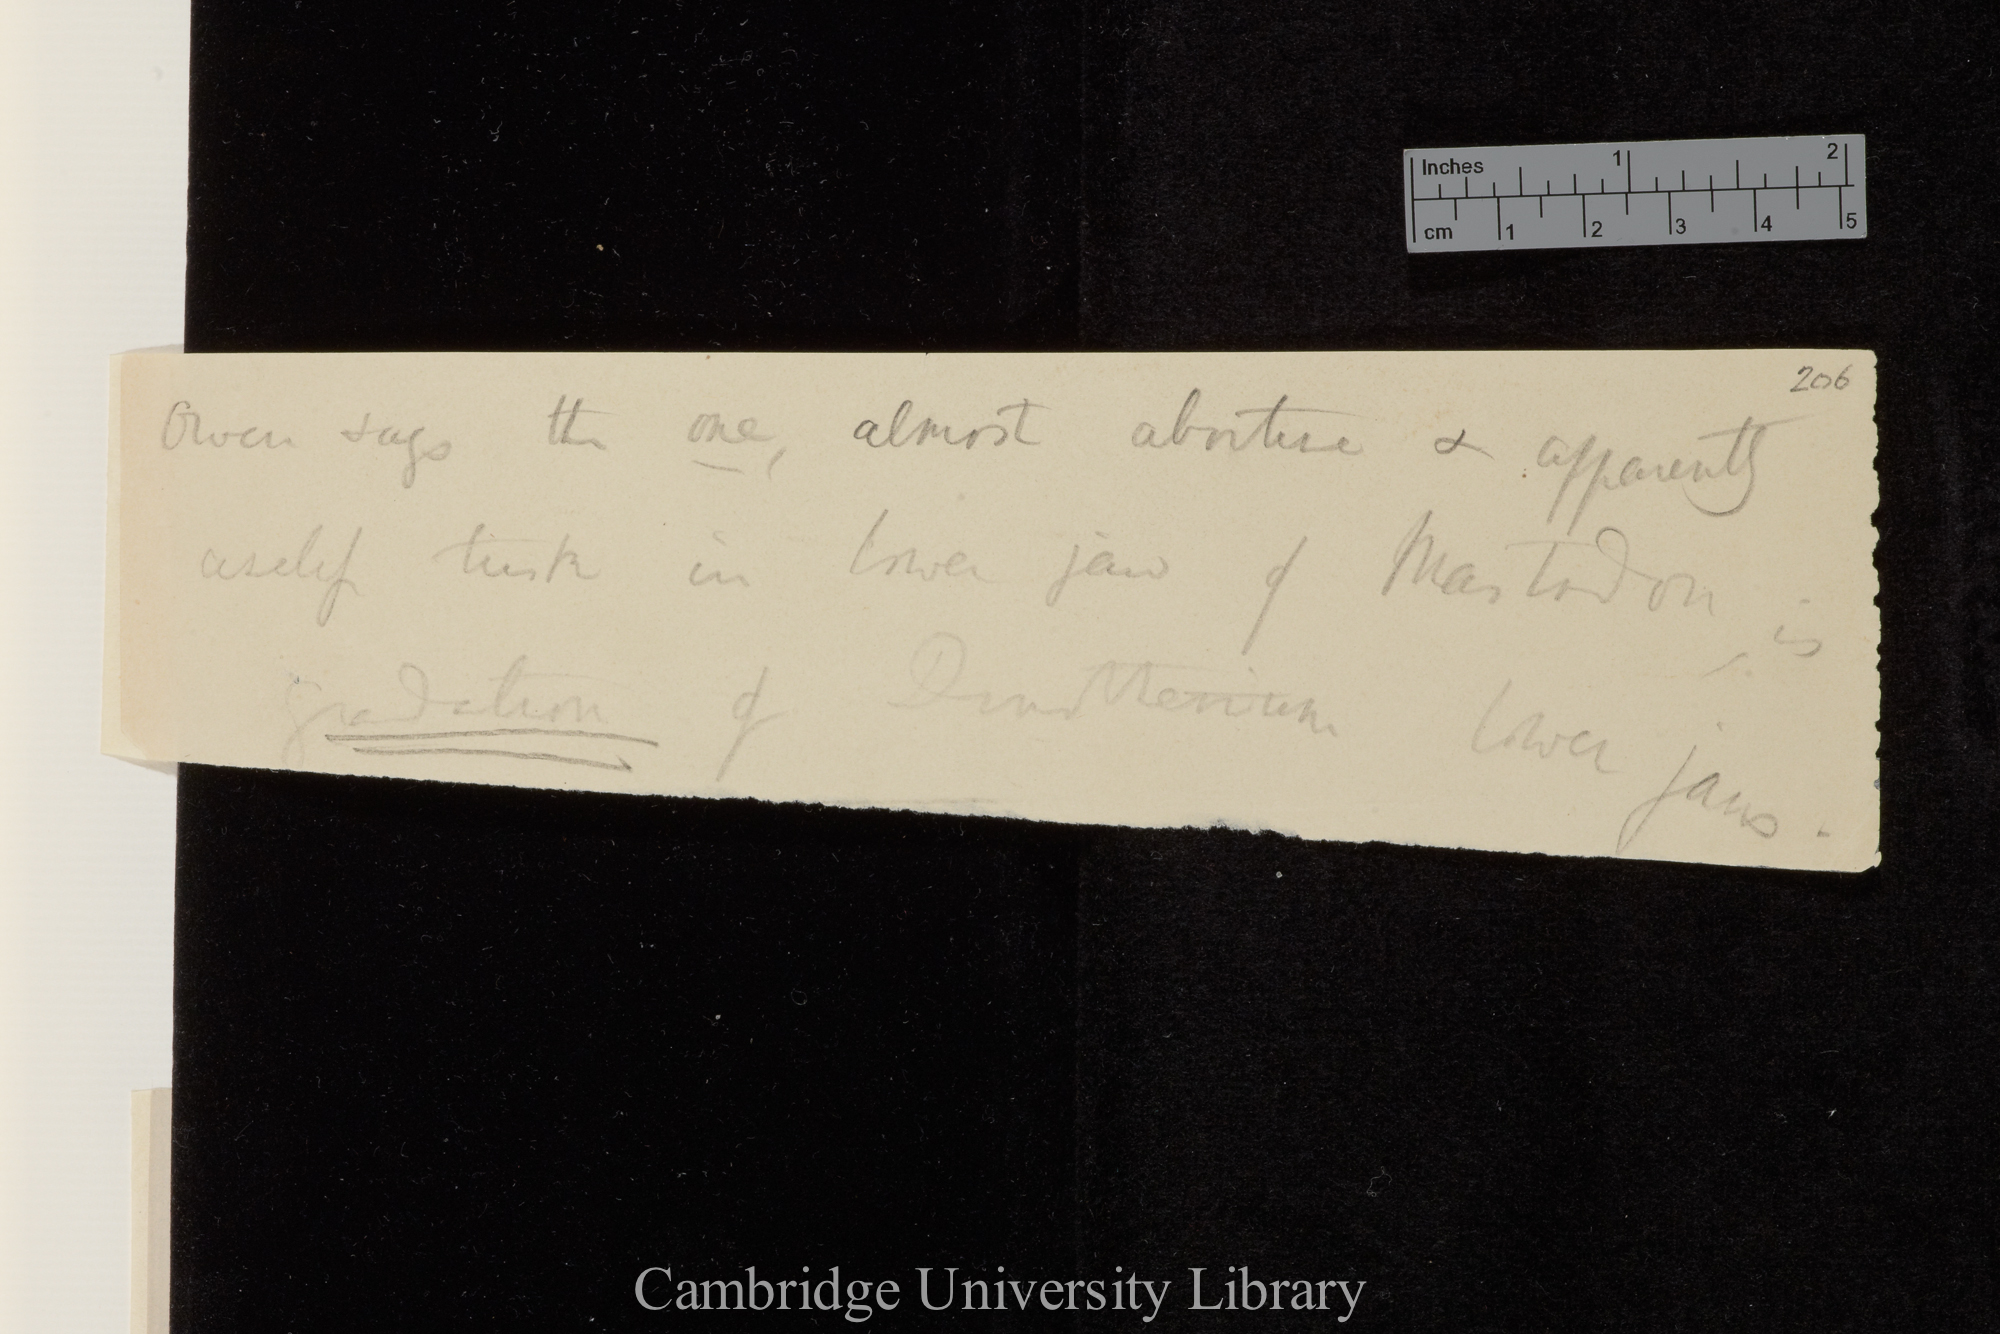 Inches 1 2
cm 1 2 3 4 5
206
Owen says the one, almost abortive & apparently
useless tusk in lower jaw of Mastodon is
gradation of Dinotherium lower jaws.
Cambridge University Library